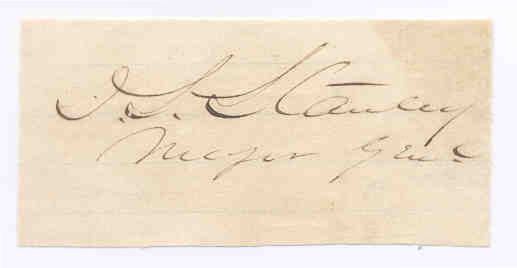 D. S. Stanley
Major Genl